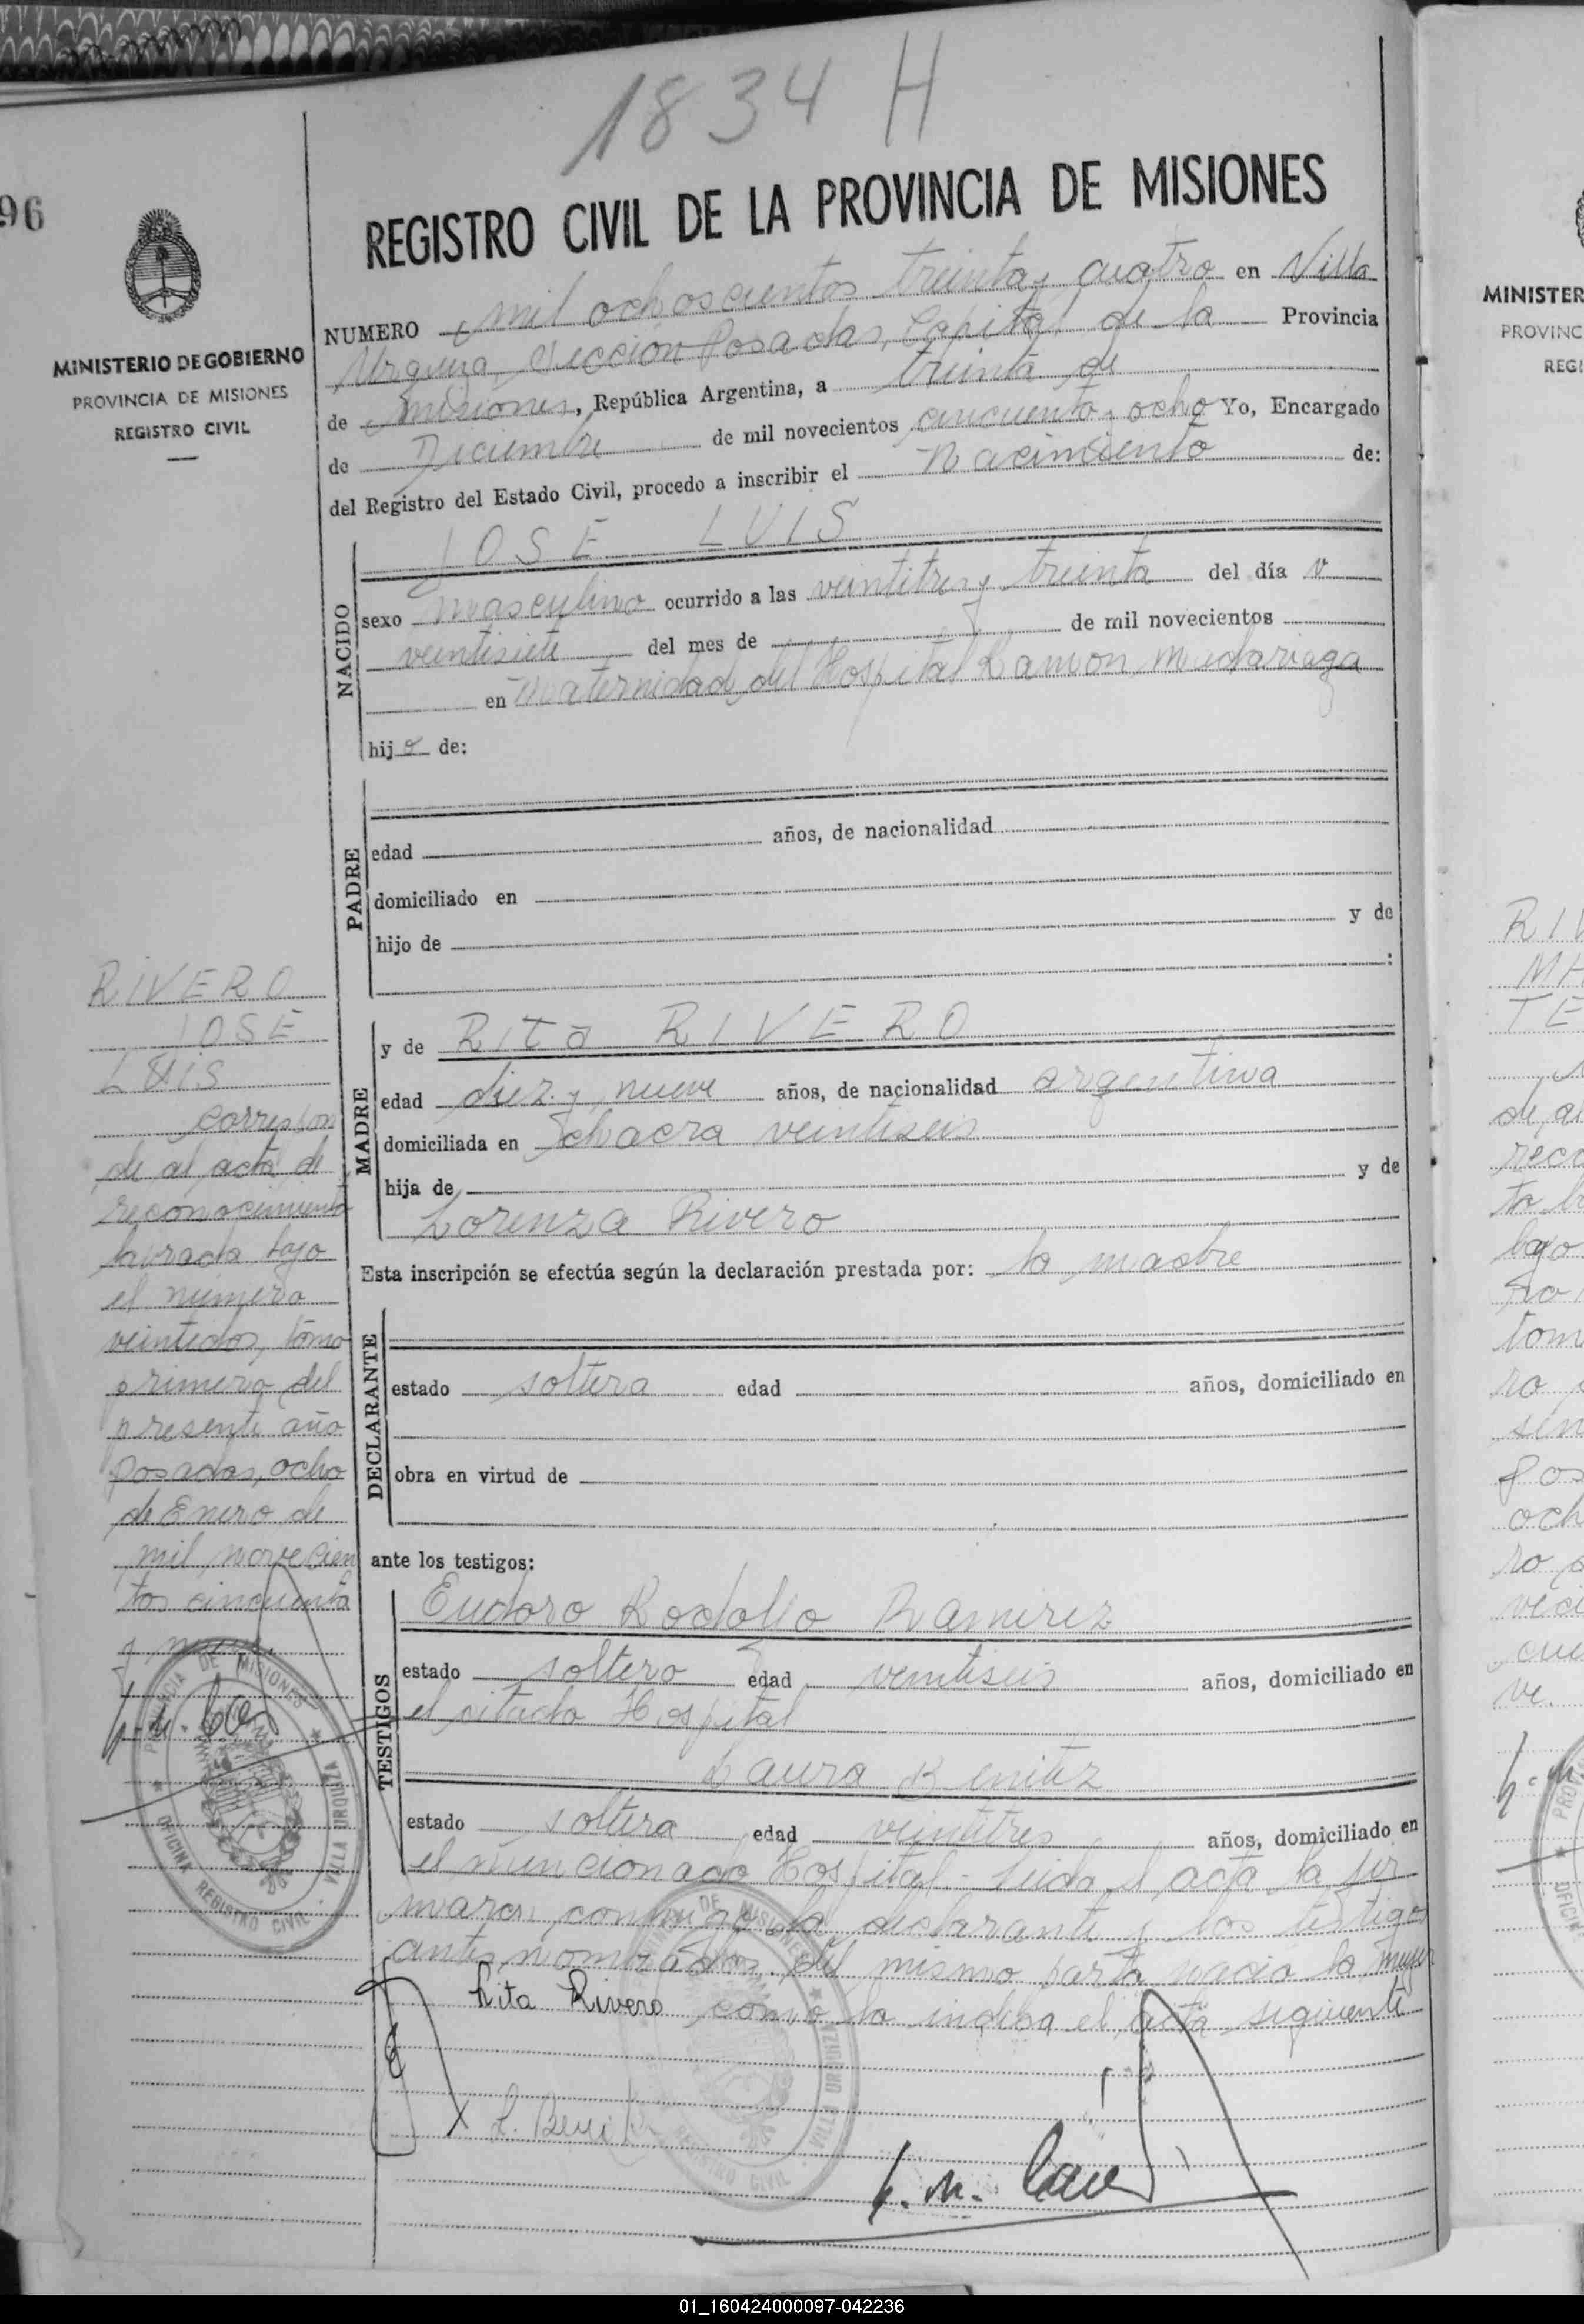 1834 H
96
MINISTERIO DE GOBIERNO
PROVINCIA DE MISIONES
REGISTRO CIVIL
REGISTRO CIVIL DE LA PROVINCIA DE MISIONES
NUMERO mil ochoscientos treinta y cuatro en Villa
Urquiza, Sección Posadas, Capital de la Provincia
de Misiones, República Argentina, a treinta de
de Diciembre de mil novecientos cincuenta y ocho Yo, Encargado
del Registro del Estado Civil, procedo a inscribir el Nacimiento de:
NACIDO
JOSE LUIS
sexo masculino ocurrido a las veintitres y treinta del día v
veintisiete del mes de de mil novecientos
en Maternidad del Hospital Ramon Madariaga
hijo de:
PADRE
edad años, de nacionalidad
domiciliado en
hijo de y de
:
MADRE
y de Rita RIVERO
edad diez y nueve años, de nacionalidad argentina
domiciliada en chacra veintiseis
hija de y de
Lorenza Rivero
Esta inscripción se efectúa según la declaración prestada por: la madre
DECLARANTE
estado soltera edad años, domiciliado en
obra en virtud de
ante los testigos:
TESTIGOS
Eudoro Rodolfo Ramirez
estado soltero edad veintiseis años, domiciliado en
el citado Hospital
Laura Benitez
estado soltera edad veintitres años, domiciliado en
el mencionado Hospital. Leida el acta la fir
maron conmigo la declarante y los testigos
antes nombrados. Del mismo parto nació la mujer
Rita Rivero como la indica el acta siguiente
L. Benit
RIVERO
JOSE
LUIS
Correspon
de al acta de
reconocimiento
labrada bajo
el número
veintidos, tomo
primero del
presente año
Posadas, ocho
de Enero de
mil novecien
tos cincuenta
y nueve.
PROVINCIA DE MISIONES
OFICINA REGISTRO CIVIL - VILLA URQUIZA
DE MISIONES
REGISTRO CIVIL - VILLA URQUIZA
MINISTER
PROVINC
REGI
RIV
TE
de
reco
bago
tom
ro
sen
Pos
och
ro
ve.
01_160424000097-042236